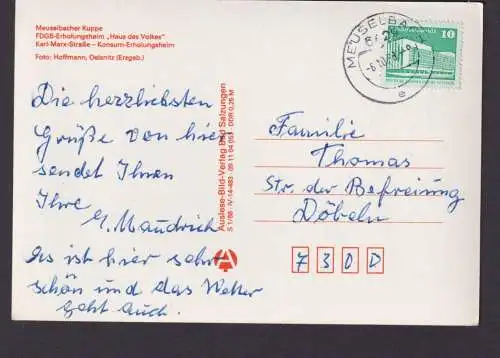 Meuselbacher Kuppe
FDGB-Erholungsheim „Haus des Volkes"
Karl-Marx-Straße – Konsum-Erholungsheim
Foto: Hoffmann, Oelsnitz (Erzgeb.)
Die herzlichsten
Grüße von hier
sendet Ihnen
Ihre
Es ist hier sehr
schön und das Wetter
geht auch.
Auslese-Bild-Verlag Bad Salzungen
MEUSELBA
10
Familie
Thomas
Str. der Befreiung
Döbeln
7300